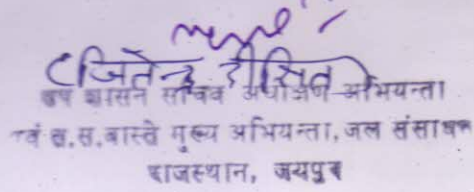 जितेन्द्र दीक्षित
उप शासन सचिव अधीक्षण अभियन्ता
एवं त.स.वास्ते मुख्य अभियन्ता, जल संसाधन
राजस्थान, जयपुर